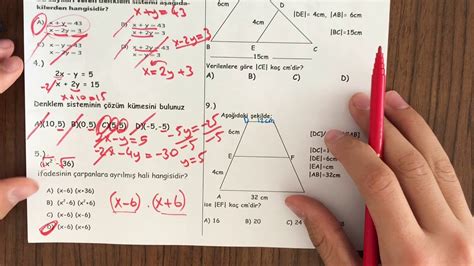 kilerden hangisidir?
A) x+y=43
x-2y=3
x+y=43
x+2y=3
x-2y=3
x=2y+3
4.)
2x-y=5
x+2y=15
x+10=15
Denklem sisteminin çözüm kümesini bulunuz
A)(10,5) B)(0,5) C)(5,5) D)(-5,-5)
2x-y=5
-2x-4y=-30
-5y=-25
-5 -5
y=5
5.)
(x²-36)
ifadesinin çarpanlara ayrılmış hali hangisidir?
A) (x-6) (x+36)
B) (x²-6) (x²+6)
C) (x-6) (x-6)
D) (x-6) (x+6)
(x-6).(x+6)
6cm
D
E
B
C
15cm
|DE|=4cm, |AB|=6cm
|BC|=15cm
Verilenlere göre |CE| kaç cm'dir?
A) B) C) D)
9.)
Aşağıdaki şekilde;
D 12cm
6cm
E
F
4cm
A
32 cm
|DC|
|DC|=12cm
|DE|=6cm
|EA|=4cm
|AB|=32cm
ise |EF| kaç cm'dir?
A) 16 B) 20 C) 24